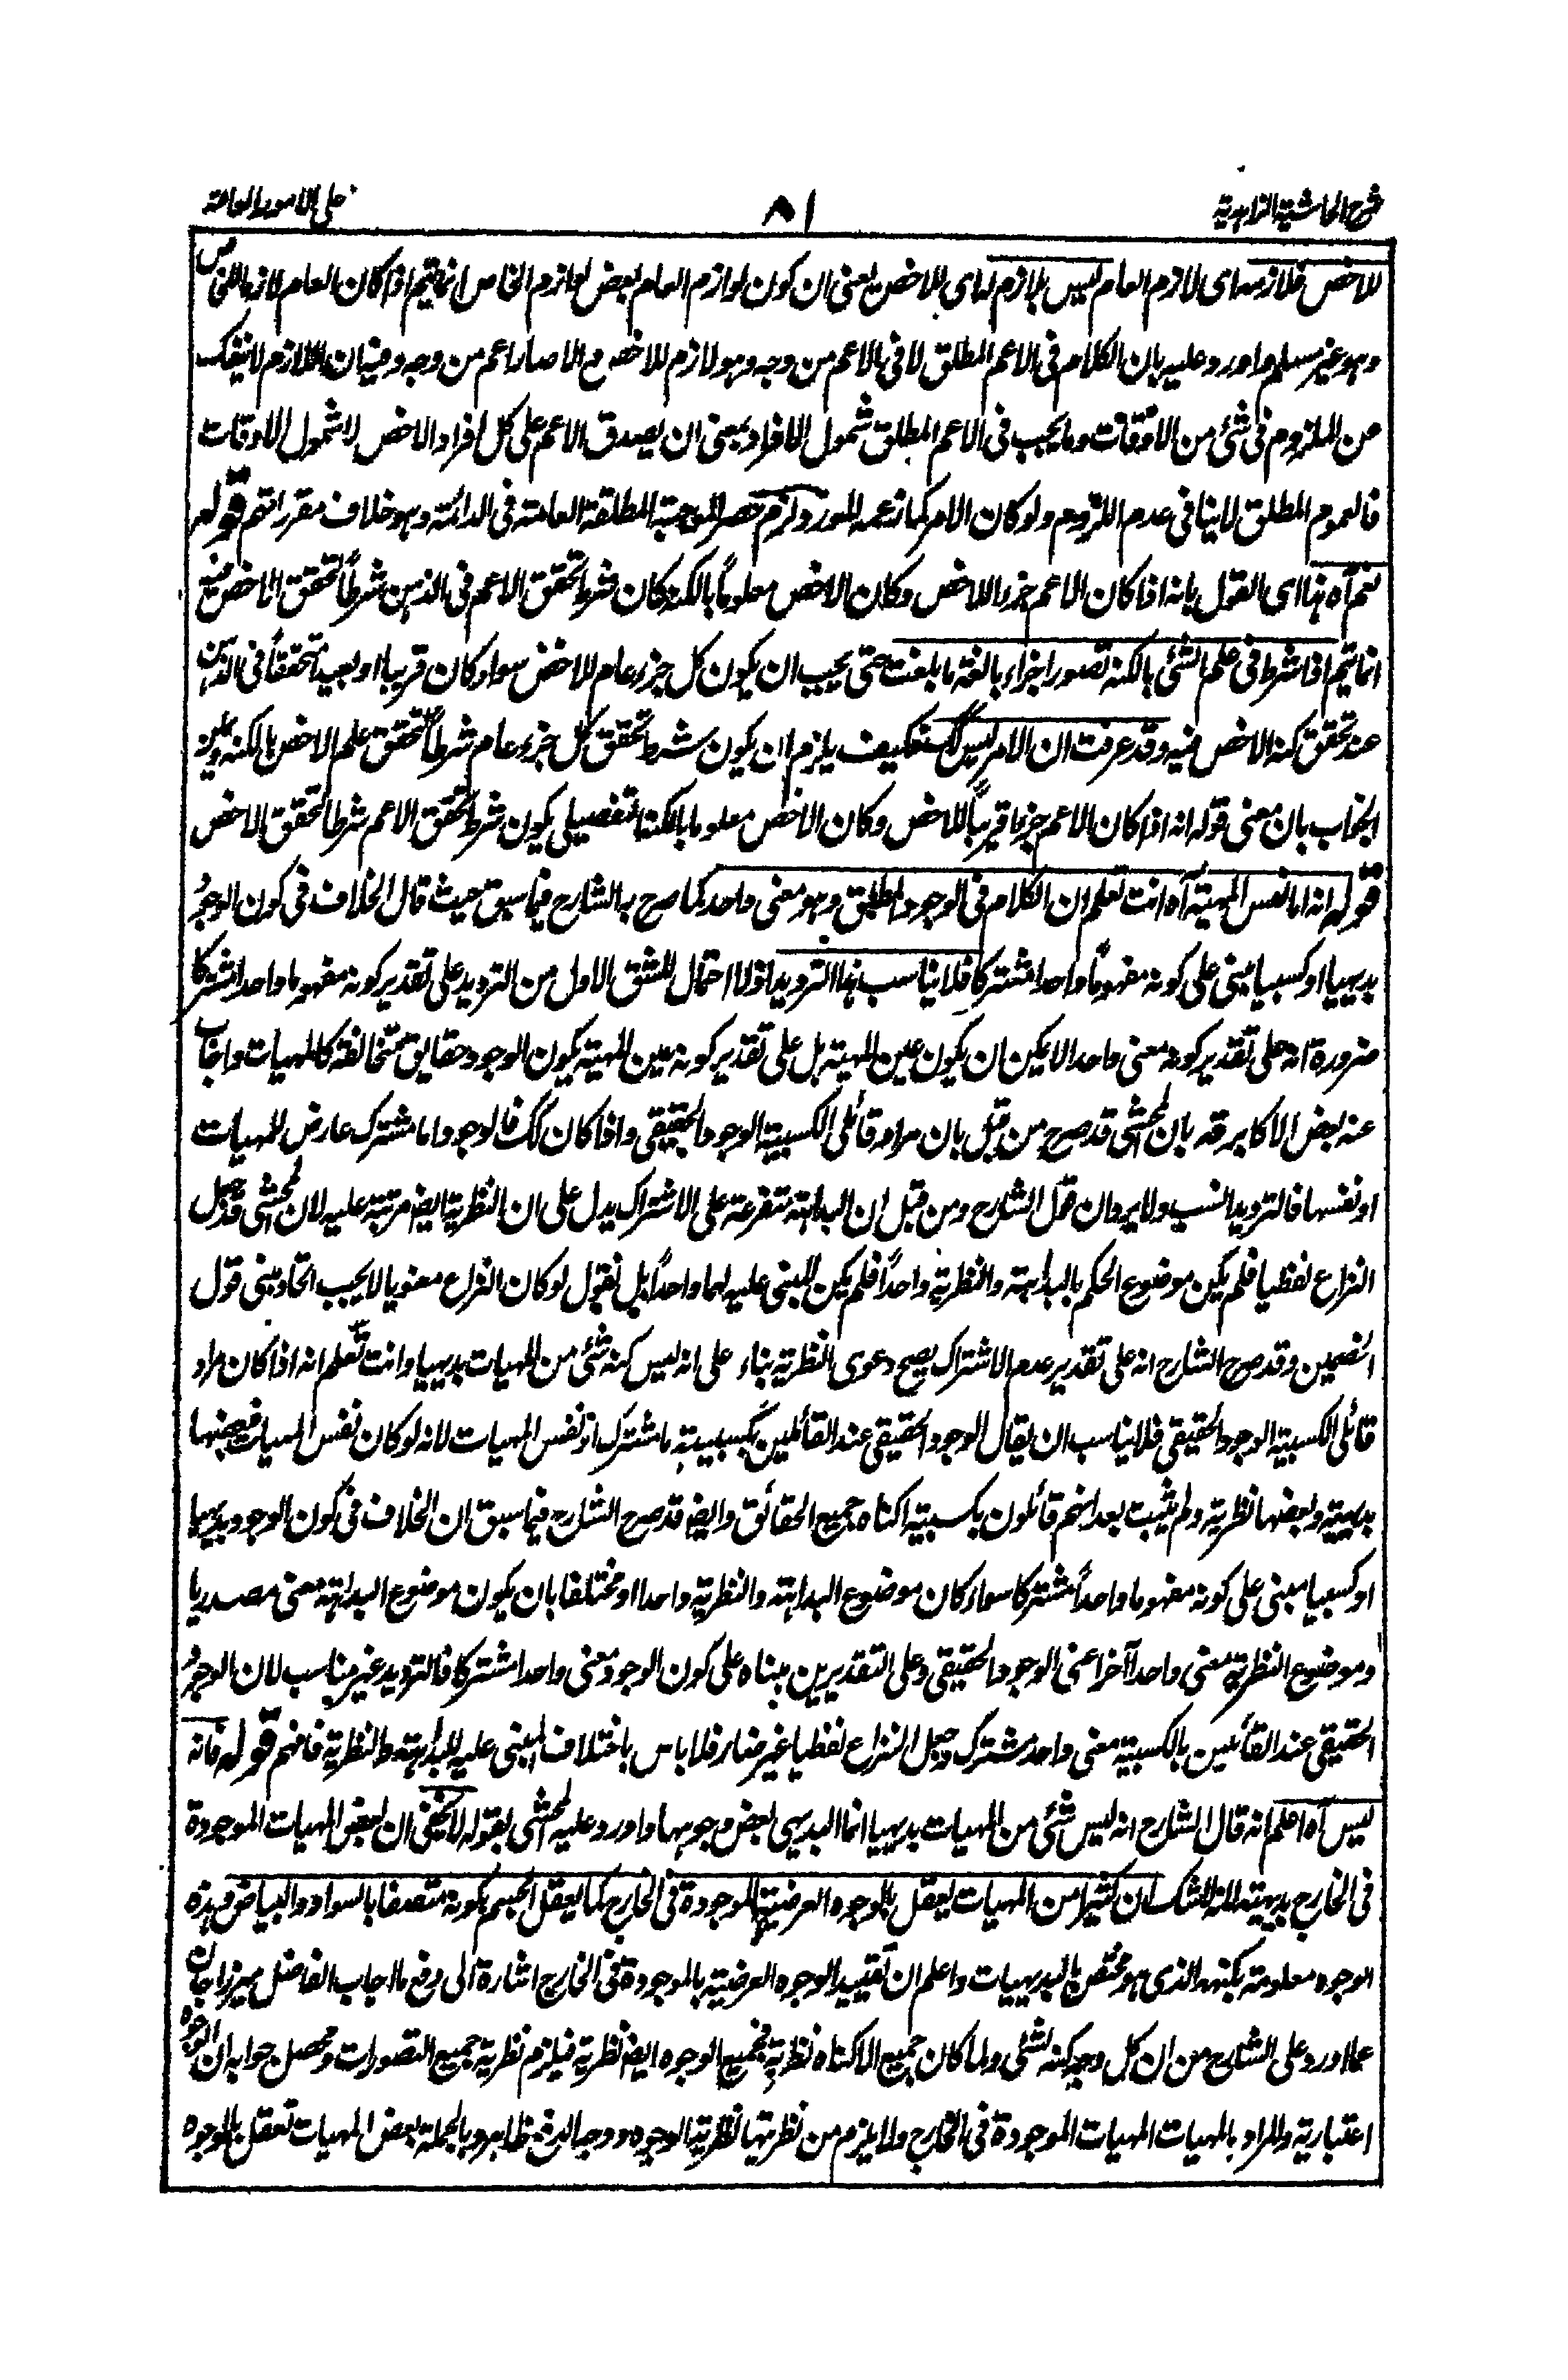 شرح الحاشية الزاهدية
٨١
على الامور العامة
للاخص فلازمه اى لازم العام ليس بلازم له اى للاخص يعنى ان كون لوازم العام بعض لوازم الخاص انما يتم اذا كان العام لازما للخاص
وهو غير مسلم واورد عليه بان الكلام فى الاعم المطلق لا فى الاعم من وجه وهو لازم للاخص والا صار اعم من وجه وفيه ان اللازم لا ينفك
من الملزوم فى شئ من الاوقات وما يجب فى الاعم المطلق شمول الافراد بمعنى ان يصدق الاعم على كل افراد الاخص لا شمول الاوقات
فالعموم المطلق لا ينافى عدم اللزوم ولو كان الامر كما زعمه المورد لزم حصر الموجبة المطلقة العامة فى الدائمة وهو خلاف مقرراتهم قوله
نعم آه هذا اى القول بانه اذا كان الاعم جزء للاخص وكان الاخص معلوماً بالكنه كان شرط تحقق الاعم فى الذهن شرطاً لتحقق الاخص فيه
انما يتم اذا شرط فى علم الشئ بالكنه تصور اجزاءه بالغة ما بلغت حتى يجب ان يكون كل جزء عام للاخص سواء كان قريبا او بعيدا متحققاً فى الذهن
عند تحقق كنه الاخص فيه وقد عرفت ان الامر ليس كك فكيف يلزم ان يكون شرط تحقق كل جزء عام شرطاً لتحقق علم الاخص بالكنه ويمكن
الجواب بان معنى قوله انه اذا كان الاعم جزءا قريباً للاخص وكان الاخص معلوما بالكنه التفصيلى يكون شرط تحقق الاعم شرطا لتحقق الاخص
قوله انه اما نفس المهية آه انت تعلم ان الكلام فى الوجود المطلق وهو معنى واحد كما صرح به الشارح فيما سبق حيث قال الخلاف فى كون الوجود
بديهيا او كسبيا مبنى على كونه مفهوماً واحدا مشتركا فلا يناسب هذا الترديد اذ لا احتمال للشق الاول من الترديد على تقدير كونه مفهوما واحدا مشتركا
ضرورة انه على تقدير كونه معنى واحدا لا يمكن ان يكون عين المهية بل على تقدير كونه عين المهية يكون الوجود حقايق متخالفة كالمهيات واجاب
عنه بعض الاكابر قه بان المحشى قد صرح من قبل بان مراد قائلى الكسبية الوجود الحقيقى واذا كان كك فالوجود اما مشترك عارض للمهيات
او نفسها فالترديد انسب ولا يرد ان قول الشارح ومن قبل ان البداهة متفرعة على الاشتراك يدل على ان النظرية ايضا مرتبة عليه لان المحشى قد جعل
النزاع لفظيا فلم يكن موضوع الحكم بالبداهة والنظرية واحداً فلم يكن المبنى عليه لهما واحداً بل نقول لو كان النزاع معنويا لا يجب اتحاد مبنى قول
الخصمين وقد صرح الشارح انه على تقدير عدم الاشتراك يصح دعوى النظرية بناء على انه ليس كنه شئ من المهيات بديهيا وانت تعلم انه اذا كان مراد
قائلى الكسبية الوجود الحقيقى فلا يناسب ان يقال الوجود الحقيقى عند القائلين بكسبيته اما مشترك او نفس المهيات لانه لو كان نفس المهيات فبعضها
بديهية وبعضها نظرية ولم يثبت بعد انهم قائلون بكسبية اكناه جميع الحقائق وايضا قد صرح الشارح فيما سبق ان الخلاف فى كون الوجود بديهيا
او كسبيا مبنى على كونه مفهوما واحداً مشتركا سواء كان موضوع البداهة والنظرية واحدا او مختلفا بان يكون موضوع البداهة معنى مصدريا
وموضوع النظرية معنى واحداً آخر اعنى الوجود الحقيقى وعلى التقديرين مبناه على كون الوجود معنى واحدا مشتركا فالترديد غير مناسب لان الوجود
الحقيقى عند القائلين بالكسبية معنى واحد مشترك وجعل النزاع لفظيا غير ضار فلا باس باختلاف المبنى عليه للبداهة والنظرية فافهم قوله فانه
ليس آه اعلم انه قال الشارح انه ليس شئ من المهيات بديهيا انما البديهى بعض وجوهها واورد عليه المحشى بقوله لا يخفى ان بعض المهيات الموجودة
فى الخارج بديهية لانه لا شك ان كثيرا من المهيات يعقل بالوجوه العرضية الموجودة فى الخارج كما يعقل الجسم بكونه متصفا بالسواد والبياض وهذه
الوجوه معلومة بكنهه الذى هو مختص بالبديهيات واعلم ان تقييد الوجوه العرضية بالموجودة فى الخارج اشارة الى دفع ما اجاب الفاضل ميرزاجان
عما اورد على الشارح من ان كل وجه كنه لشئ ولما كان جميع الاكناه نظرية فجميع الوجوه ايضا نظرية فيلزم نظرية جميع التصورات ومحصل جوابه ان الوجوه
اعتبارية والمراد بالمهيات المهيات الموجودة فى الخارج ولا يلزم من نظريتها نظرية الوجوه ووجه الدفع ظاهر وبالجملة بعض المهيات تعقل بالوجوه